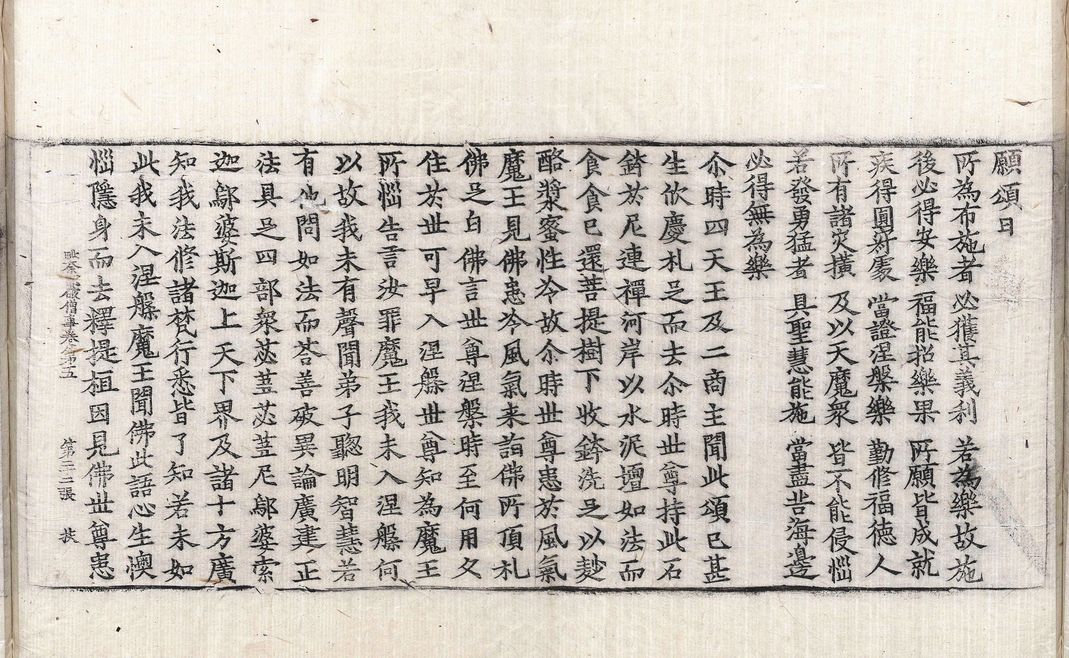 願頌曰
所為布施者 必獲其義利 若為樂故施
後必得安樂 福能招樂果 所願皆成就
疾得圓寂處 當證涅槃樂 勤修福德人
所有諸災橫 及以天魔衆 皆不能侵惱
若發勇猛者 具聖慧能施 當盡苦海邊
必得無為樂
尒時四天王及二商主聞此頌已甚
生欣慶札足而去尒時世尊持此石
鉢於尼連禪河岸以水泥壇如法而
食食已還菩提樹下收鉢洗足以麨
酪漿蜜性冷故尒時世尊患於風氣
魔王見佛患冷風氣来詣佛所頂札
佛足白佛言世尊涅槃時至何用久
住於世可早入涅槃世尊知為魔王
所惱告言汝罪魔王我未入涅槃何
以故我未有聲聞弟子聦明智慧若
有他問如法而荅善破異論廣建正
法具足四部衆苾蒭苾蒭尼鄔婆索
迦鄔婆斯迦上天下界及諸十方廣
知我法修諸梵行悉皆了知若未如
此我未入涅槃魔王聞佛此語心生懊
惱隱身而去釋提桓因見佛世尊患
破僧事卷第五 第二張